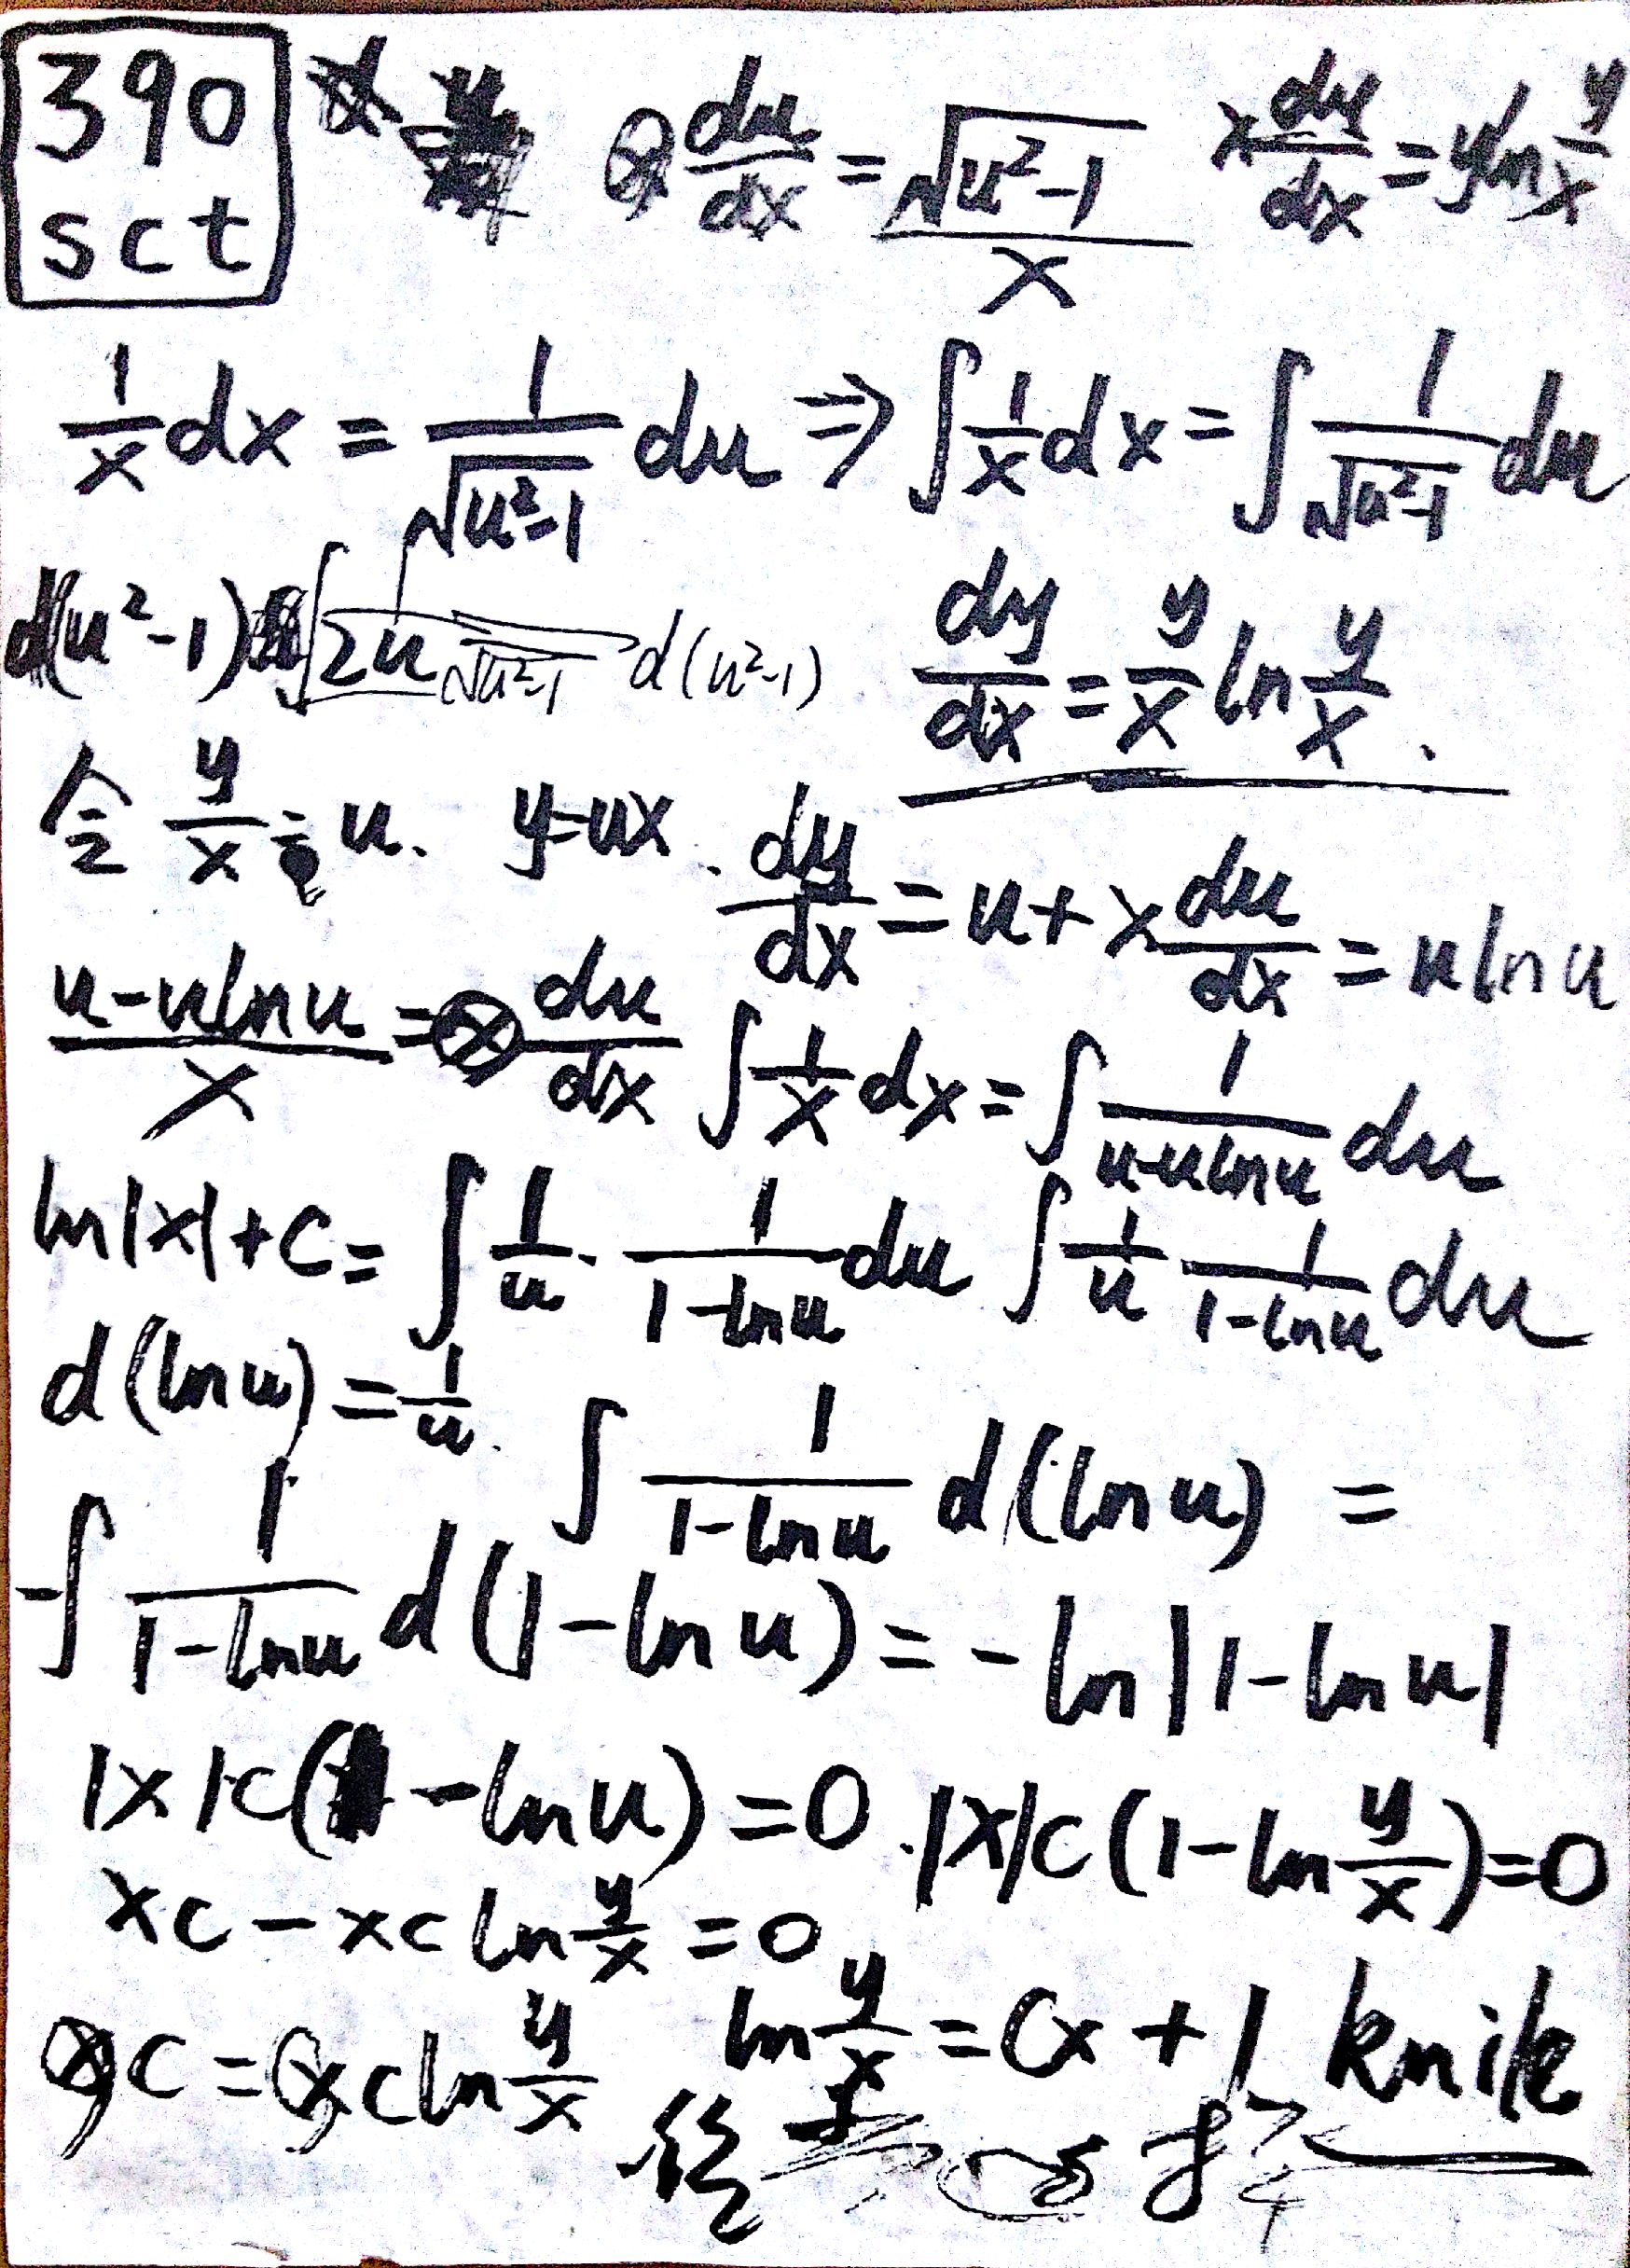 390
sct
du/dx = √(u²-1)/x   x dy/dx = y ln y/x
1/x dx = 1/√(u²-1) du ⇒ ∫ 1/x dx = ∫ 1/√(u²-1) du
d(u²-1) ∫ 1/(2u√(u²-1)) d(u²-1)   dy/dx = y/x ln y/x .
令 y/x = u. y=ux. dy/dx = u + x du/dx = u ln u
(u-u ln u)/x = du/dx   ∫ 1/x dx = ∫ 1/(u-u ln u) du
ln|x|+C = ∫ 1/u · 1/(1-ln u) du   ∫ 1/u 1/(1-ln u) du
d(ln u) = 1/u.   ∫ 1/(1-ln u) d(ln u) =
-∫ 1/(1-ln u) d(1-ln u) = -ln|1-ln u|
|x|c(1-ln u) = 0 . |x|c(1-ln y/x) = 0
xc - xc ln y/x = 0
xc = xc ln y/x   ln y/x = Cx + 1 knik